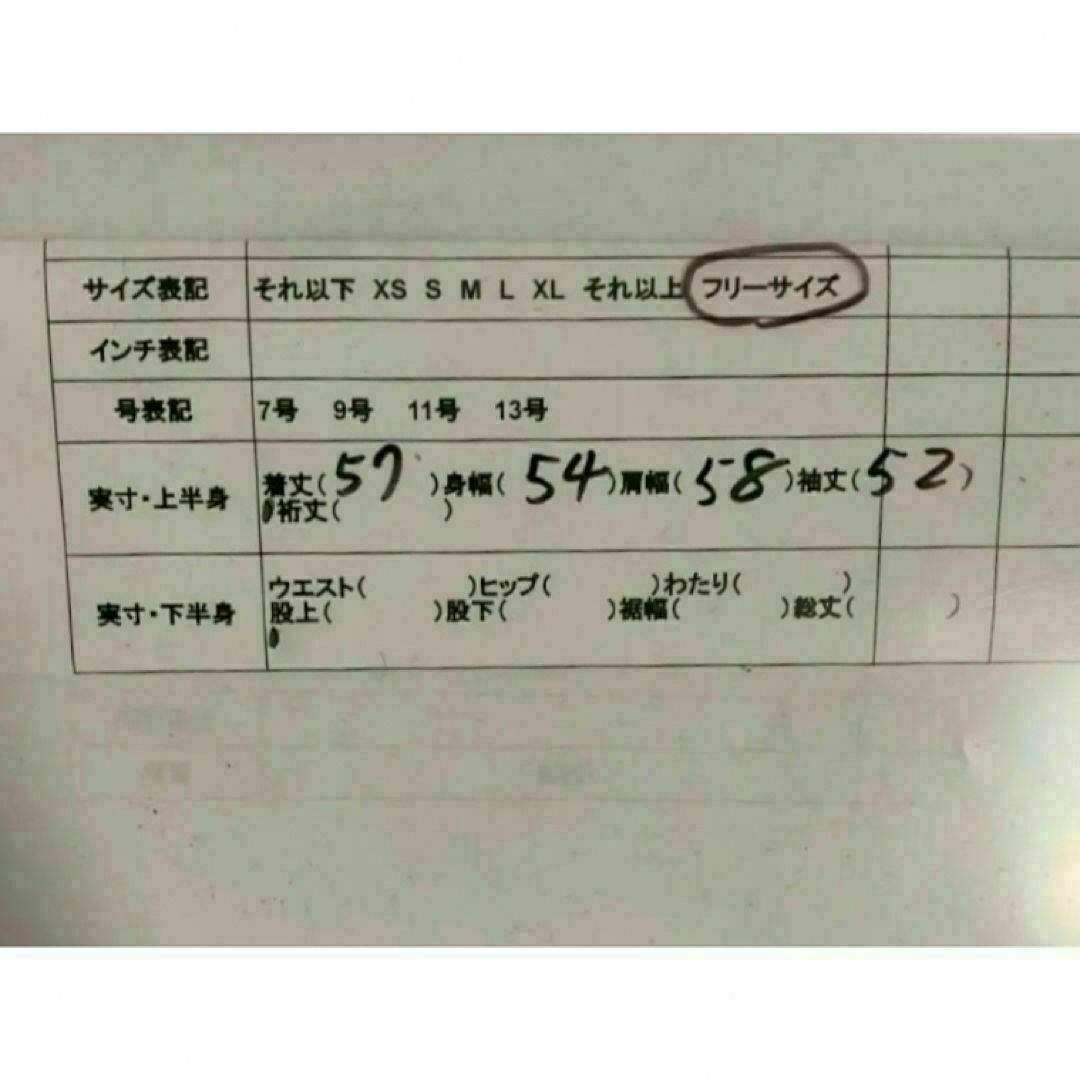 サイズ表記 それ以下 XS S M L XL それ以上 フリーサイズ
インチ表記
号表記 7号 9号 11号 13号
実寸・上半身 着丈(57)身幅(54)肩幅(58)袖丈(52)
裄丈( )
実寸・下半身 ウエスト( )ヒップ( )わたり( )
股上( )股下( )裾幅( )総丈( )